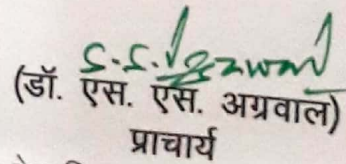 S.S. Agrawal
(डॉ. एस. एस. अग्रवाल)
प्राचार्य